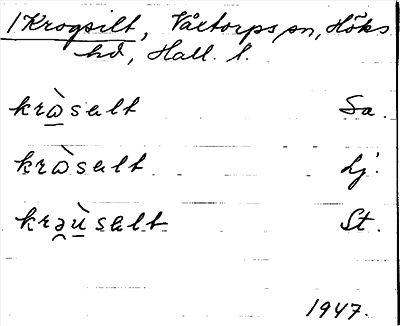 1 Krogsilt, Våxtorps sn, Höks
hd, Hall. l.
krὼsalt Sa.
krὼsalt Lj.
krəùsalt St.
1947.